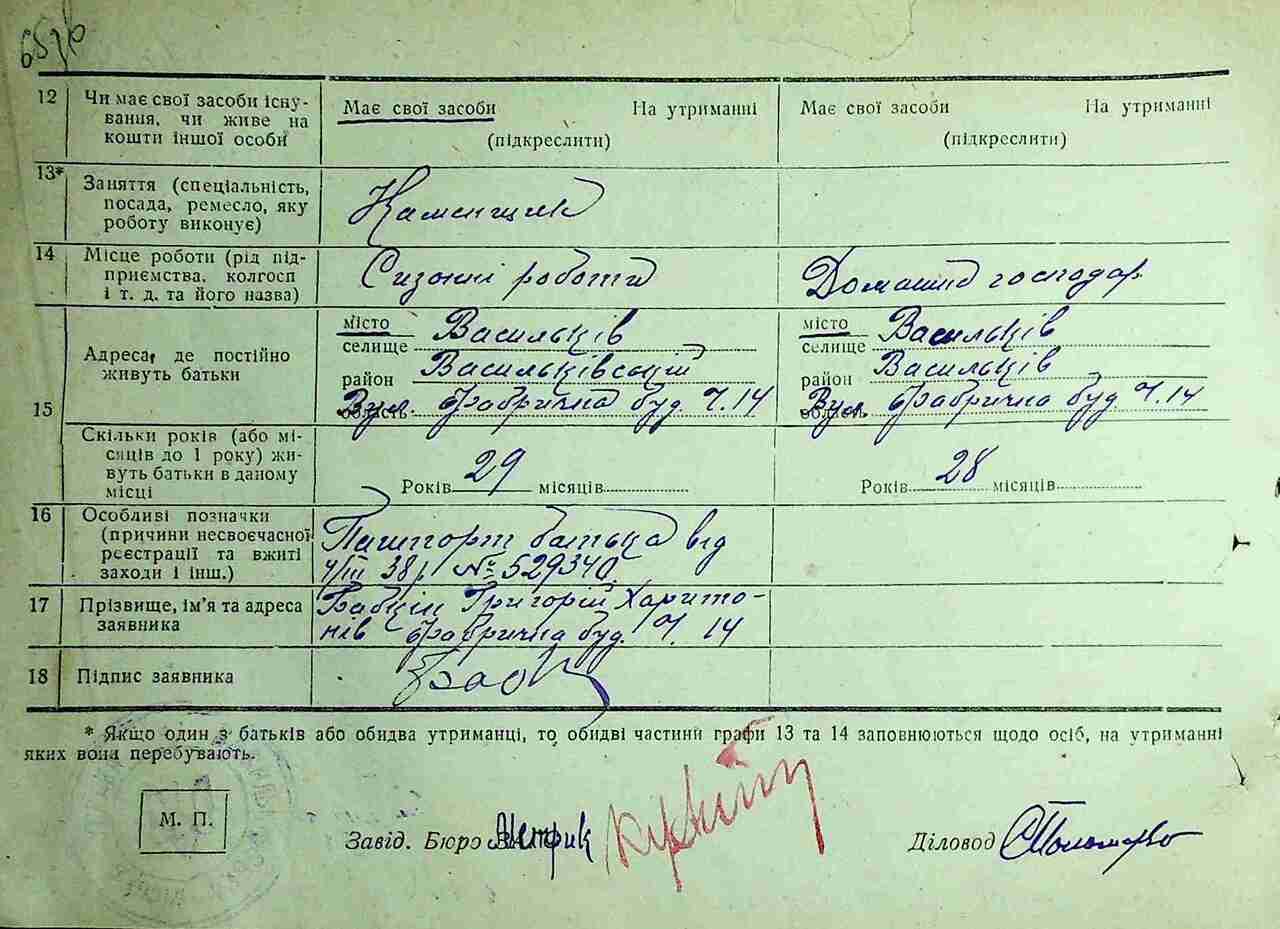 12 Чи має свої засоби існу-
вання, чи живе на
кошти іншої особи
Має свої засоби На утриманні
(підкреслити)
Має свої засоби На утриманні
(підкреслити)
13* Заняття (спеціальність,
посада, ремесло, яку
роботу виконує)
Каменщик
14 Місце роботи (рід під-
приємства, колгосп
і т. д. та його назва)
Сизонні роботи
Домашня господар
15 Адреса, де постійно
живуть батьки
місто Васильків
селище
район Васильківський
область Вул. Фабрична буд. Ч. 14
місто Васильків
селище
район Васильків
область Вул. Фабрична буд. Ч. 14
Скільки років (або мі-
сяців до 1 року) жи-
вуть батьки в даному
місці
Років 29 місяців
Років 28 місяців
16 Особливі позначки
(причини несвоєчасної
реєстрації та вжиті
заходи і інш.)
Пашпорт батька від
4/III 38 р. № 529340
17 Прізвище, ім’я та адреса
заявника
Бабкін Григорій Харито-
нів Фабрична буд. Ч. 14
18 Підпис заявника
* Якщо один з батьків або обидва утриманці, то обидві частини графи 13 та 14 заповнюються щодо осіб, на утриманні
яких вони перебувають.
М. П.
Завід. Бюро Метрик
Діловод